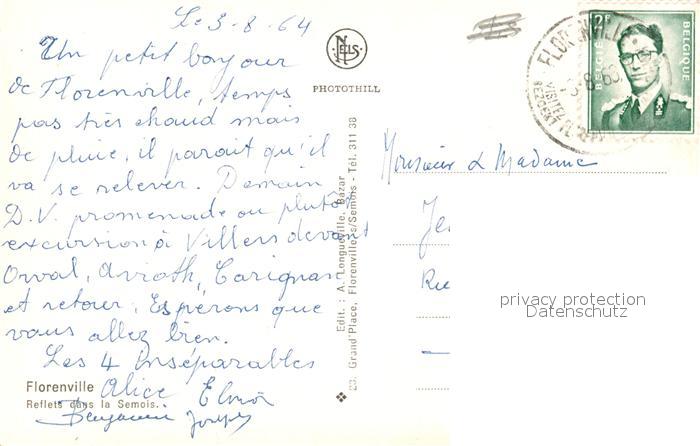 Le 3-8-64
Un petit bonjour
de Florenville, temps
pas très chaud mais
de pluie, il parait qu'il
va se relever. Demain
D.V. promenade ou plutôt
excursion à Villers devant
Orval, Avioth, Carignan
et retour. Espérons que
vous allez bien.
Les 4 Inséparables
Alice
Benjamin
Florenville
Reflets dans la Semois.
NELS
PHOTOTHILL
Edit. : A. Longueville, Bazar
23, Grand'Place, Florenville s/Semois - Tél. 311 38
2F
BELGIË
BELGIQUE
FLORENVILLE
Monsieur & Madame
privacy protection
Datenschutz